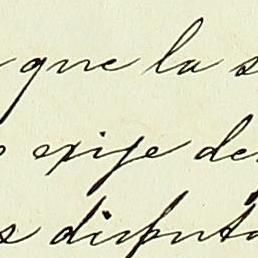 que la s
exije de
s disputa